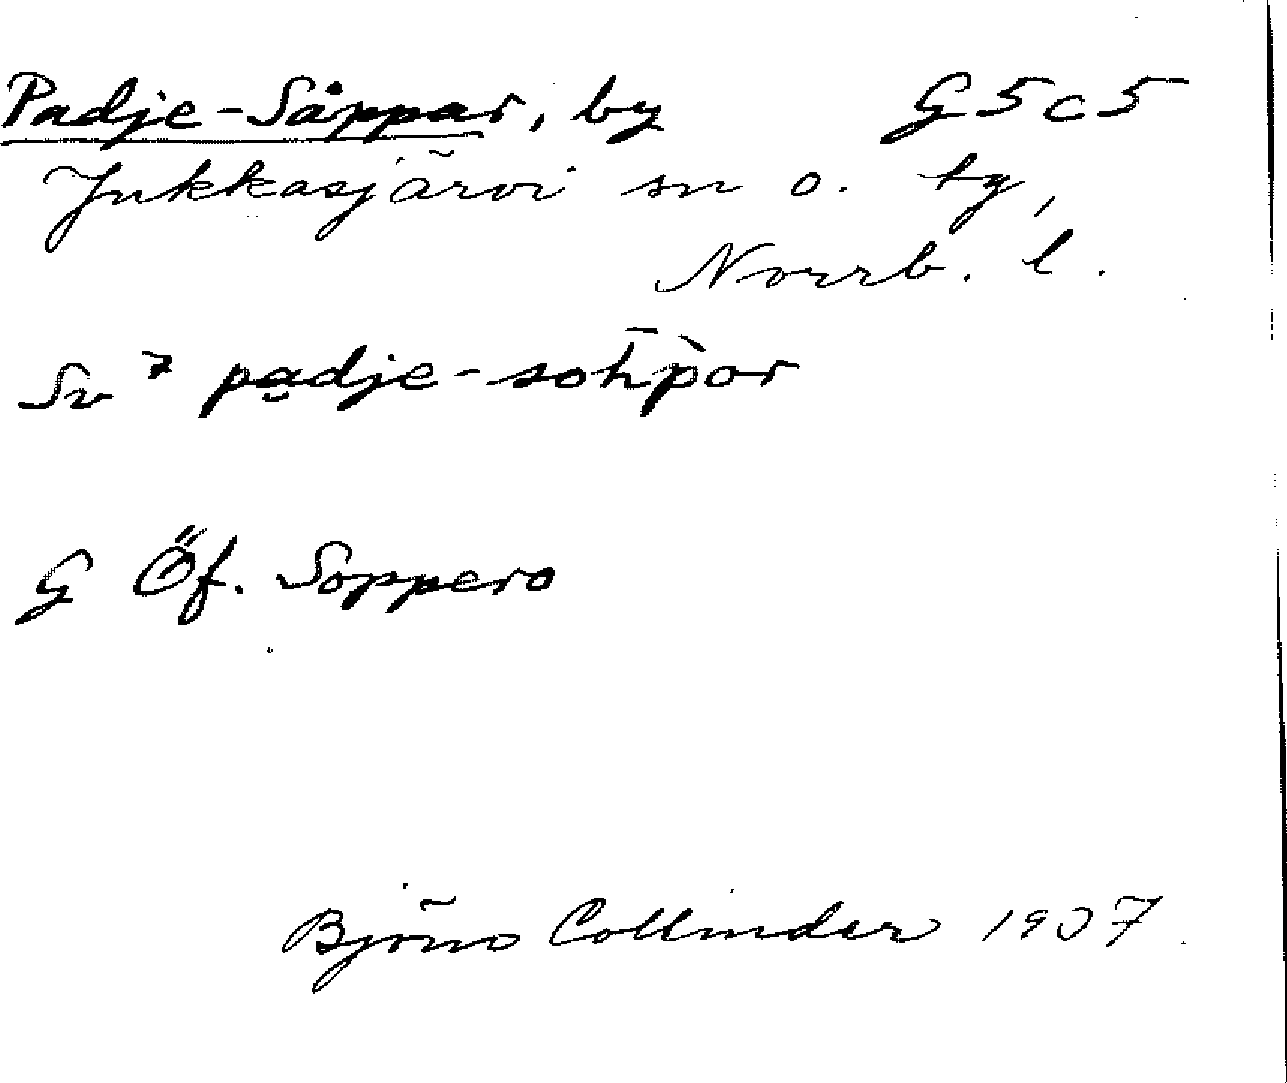 Padje-Såppar, by G5c5
Jukkasjärvi sn o. tg,
Norrb. l.
Sv padje-sohpor
G Öf. Soppero
Björn Collinder 1907